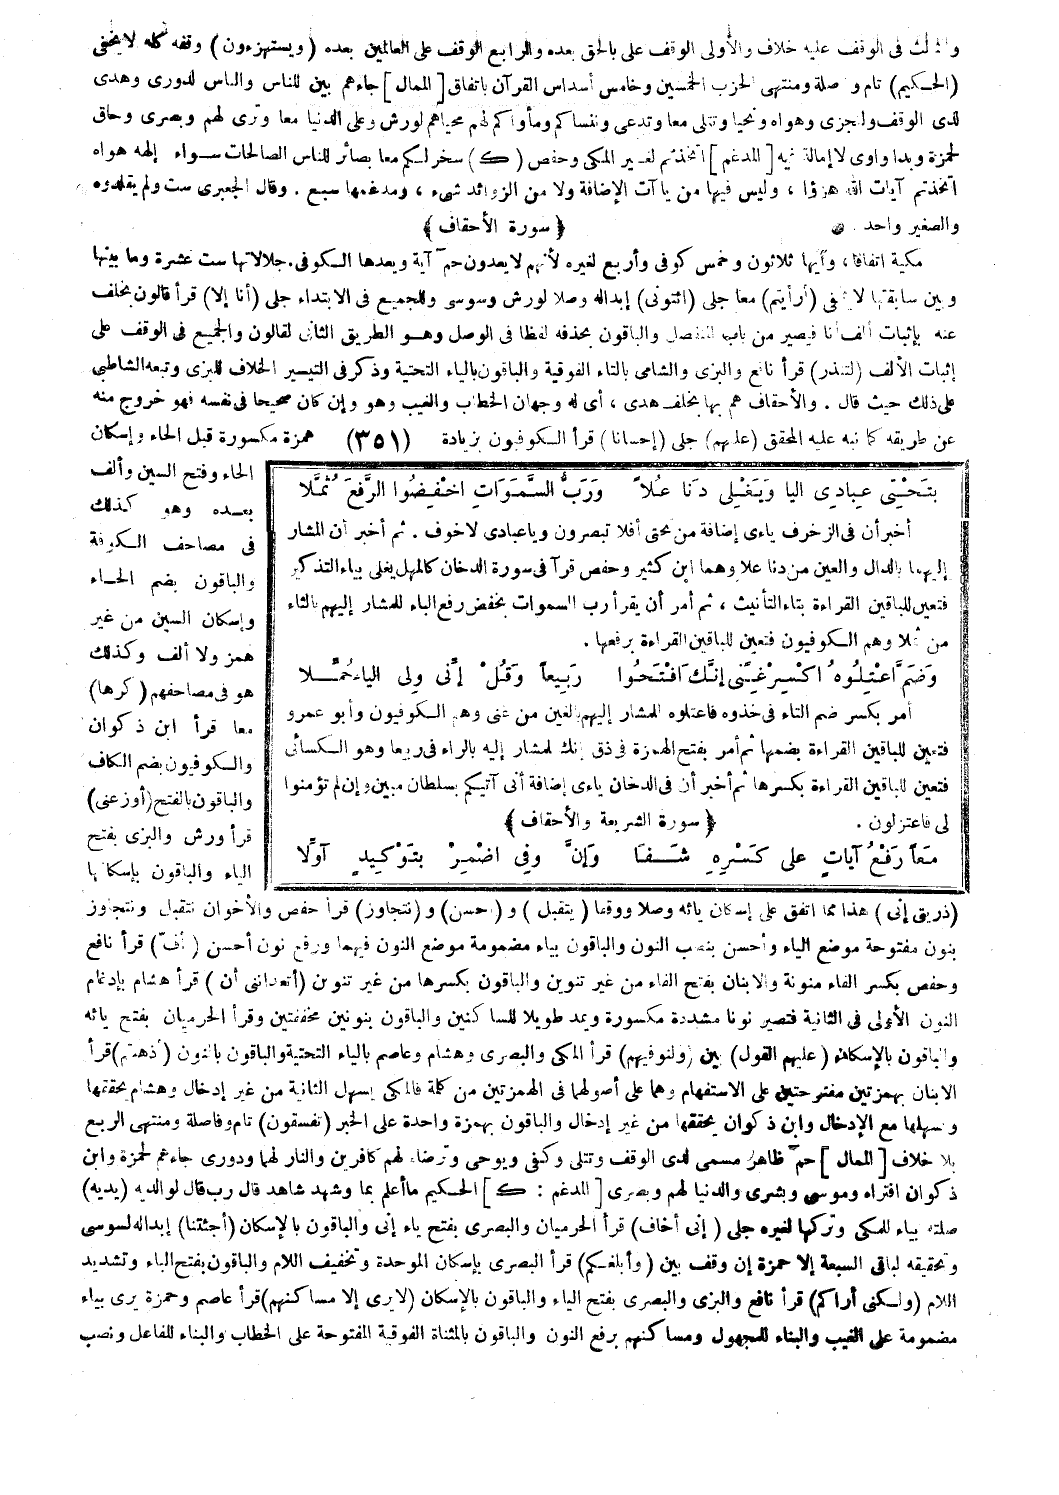 والثالث فى الوقف عليه خلاف والأولى الوقف على بالحق بعده والرابع الوقف على العالمين بعده (ويستهزءون) وقفه كله لا يخفى
(الحكيم) تام وفاصلة ومنتهى الحزب الخمسين وخامس أسداس القرآن باتفاق [الممال] جاءهم بين للناس والناس لدورى وهدى
لدى الوقف ولتجزى وهواه ونحيا وتتلى معا وتدعى وننساكم ومأواكم لهم محياهم لورش وعلى الدنيا معا وترى لهم وبصرى وحاق
لحمزة وبدا واوى لا إمالة فيه [المدغم] اتخذتم لغير المكى وحفص (ك) سخر لكم معا بصائر للناس الصالحات سواء إلهه هواه
اتخذتم آيات الله هزؤا ، وليس فيها من ياآت الإضافة ولا من الزوائد شىء ، ومدغمها سبع . وقال الجعبرى ست ولم يقلدوه
والصغير واحد .
﴿ سورة الأحقاف ﴾
مكية اتفاقا ، وآيها ثلاثون وخمس كوفى وأربع لغيره لأنهم لا يعدون حم آية ويعدها الكوفى . جلالاتها ست عشرة وما بينها
وبين سابقتها لا يخفى (أرأيتم) معا جلى (ائتونى) إبداله وصلا لورش وسوسى وللجميع فى الابتداء جلى (أنا إلا) قرأ قالون بخلف
عنه بإثبات ألف أنا فيصير من باب المنفصل والباقون بحذفه لفظا فى الوصل وهو الطريق الثانى لقالون والجميع فى الوقف على
إثبات الألف (لتنذر) قرأ نافع والبزى والشامى بالتاء الفوقية والباقون بالياء التحتية وذكر فى التيسير الخلاف للبزى وتبعه الشاطبى
على ذلك حيث قال . والأحقاف هم بها بخلف هدى ، أى له وجهان الخطاب والغيب وهو وإن كان صحيحا فى نفسه فهو خروج منه
عن طريقه كما نبه عليه المحقق (عليهم) جلى (إحسانا) قرأ الكوفيون بزيادة (٣٥١) همزة مكسورة قبل الحاء وإسكان
الحاء وفتح السين وألف
بعده وهو كذلك
فى مصاحف الكوفة
والباقون بضم الحاء
وإسكان السين من غير
همز ولا ألف وكذلك
هو فى مصاحفهم (كرها)
معا قرأ ابن ذكوان
والكوفيون بضم الكاف
والباقون بالفتح (أوزعنى)
قرأ ورش والبزى بفتح
الياء والباقون بإسكانها
بتحتى عبادى اليا ويغلى دنا علا ورب السموات اخفضوا الرفع ثملا
أخبر أن فى الزخرف ياءى إضافة من تحتى أفلا تبصرون وياعبادى لا خوف . ثم أخبر أن المشار
إليهما بالدال والعين من دنا علا وهما ابن كثير وحفص قرآ فى سورة الدخان كالمهل يغلى بياء التذكير
فتعين للباقين القراءة بتاء التأنيث ، ثم أمر أن يقرأ رب السموات بخفض رفع الباء للمشار إليهم بالثاء
من ثملا وهم الكوفيون فتعين للباقين القراءة برفعها .
وضم اعتلوه اكسر غنى إنك افتحوا ربيعا وقل إنى ولى الياء حملا
أمر بكسر ضم التاء فى خذوه فاعتلوه للمشار إليهم بالغين من غنى وهم الكوفيون وأبو عمرو
فتعين للباقين القراءة بضمها ثم أمر بفتح الهمزة فى ذق إنك للمشار إليه بالراء فى ربيعا وهو الكسائى
فتعين للباقين القراءة بكسرها ثم أخبر أن فى الدخان ياءى إضافة أنى آتيكم بسلطان مبين وإن لم تؤمنوا
لى فاعتزلون .
﴿ سورة الشريعة والأحقاف ﴾
معا رفع آيات على كسره شفا وإن وفى اضمر بتوكيد اولا
(ذريتى إنى) هذا مما اتفق على إسكان يائه وصلا ووقفا (يتقبل) و(أحسن) و(نتجاوز) قرأ حفص والأخوان نتقبل ونتجاوز
بنون مفتوحة موضع الياء وأحسن بنصب النون والباقون بياء مضمومة موضع النون فيهما ورفع نون أحسن (أف) قرأ نافع
وحفص بكسر الفاء منونة والابنان بفتح الفاء من غير تنوين والباقون بكسرها من غير تنوين (أتعداننى أن) قرأ هشام بإدغام
النون الأولى فى الثانية فتصير نونا مشددة مكسورة ويمد طويلا للساكنين والباقون بنونين مخففتين وقرأ الحرميان بفتح يائه
والباقون بالإسكان (عليهم القول) بين (ولنوفيهم) قرأ المكى والبصرى وهشام وعاصم بالياء التحتية والباقون بالنون (أذهبتم) قرأ
الابنان بهمزتين مفتوحتين على الاستفهام وهما على أصولهما فى الهمزتين من كلمة فالمكى يسهل الثانية من غير إدخال وهشام يحققها
ويسهلها مع الإدخال وابن ذكوان يحققها من غير إدخال والباقون بهمزة واحدة على الخبر (تفسقون) تام وفاصلة ومنتهى الربع
بلا خلاف [الممال] حم ظاهر مسمى لدى الوقف وتتلى وكفى ويوحى وترضاه لهم كافرين والنار لهما ودورى جاءهم لحمزة وابن
ذكوان افتراه وموسى وبشرى والدنيا لهم وبصرى [المدغم : ك] الحكيم ما أعلم بما وشهد شاهد قال رب قال لوالديه (يديه)
صلته بياء للمكى وتركها لغيره جلى (إنى أخاف) قرأ الحرميان والبصرى بفتح ياء إنى والباقون بالإسكان (أجئتنا) إبداله لسوسى
وتحقيقه لباقى السبعة إلا حمزة إن وقف بين (وأبلغكم) قرأ البصرى بإسكان الموحدة وتخفيف اللام والباقون بفتح الباء وتشديد
اللام (ولكنى أراكم) قرأ نافع والبزى والبصرى بفتح الياء والباقون بالإسكان (لا يرى إلا مساكنهم) قرأ عاصم وحمزة يرى بياء
مضمومة على الغيب والبناء للمجهول ومساكنهم برفع النون والباقون بالمثناة الفوقية المفتوحة على الخطاب والبناء للفاعل ونصب